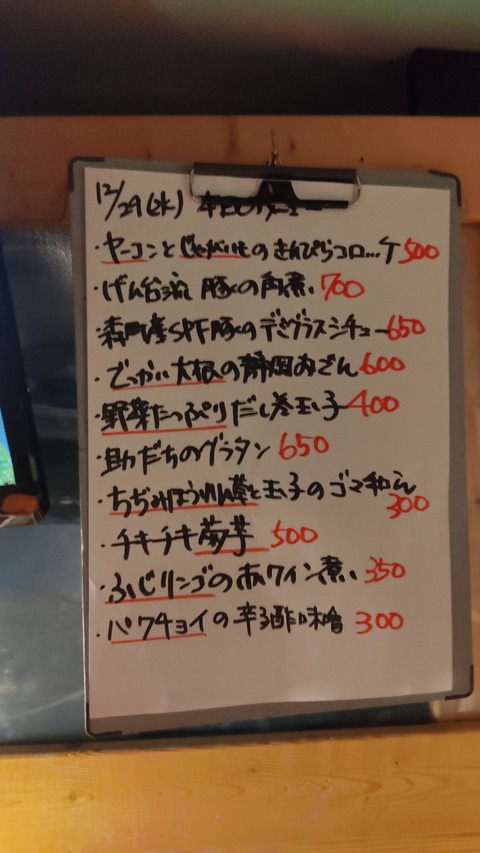 12/29(水) 本日のメニュー
・ヤーコンとじゃがいものきんぴらコロッケ 500
・げん谷流 豚の角煮 700
・森町産SPF豚のデミグラスシチュー 650
・でっかい大根の静岡おでん 600
・野菜たっぷりだし巻玉子 400
・助だちのグラタン 650
・ちぢみほうれん草と玉子のゴマ和え
300
・チキチキ菊芋 500
・ふじリンゴの赤ワイン煮 350
・パクチョイの辛子酢味噌 300